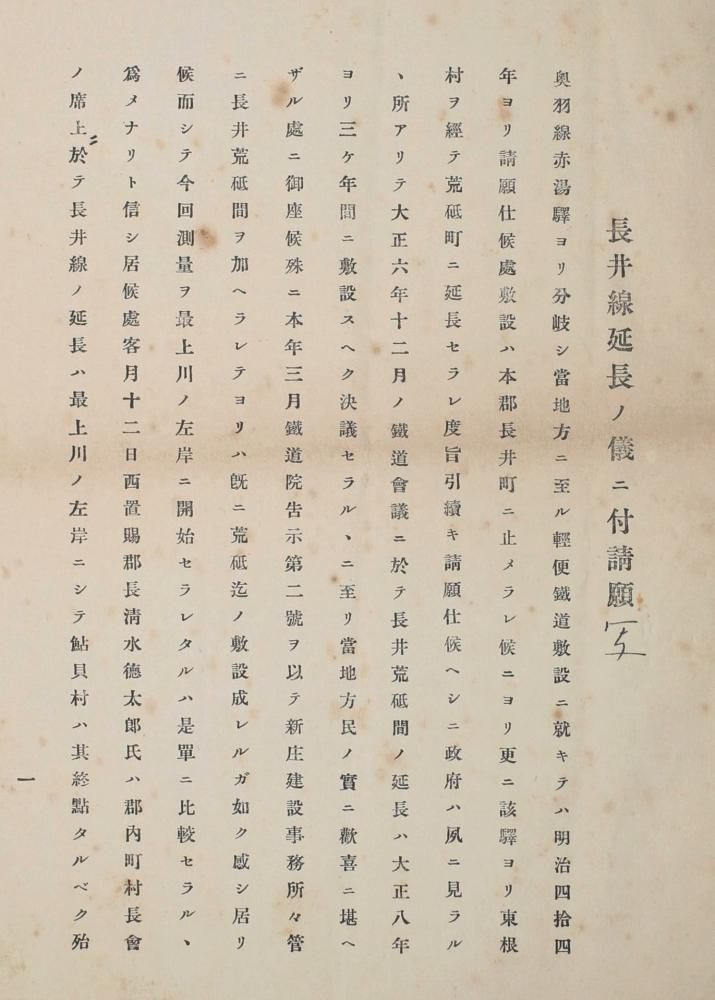 長井線延長ノ儀ニ付請願 写
奥羽線赤湯驛ヨリ分岐シ當地方ニ至ル輕便鐵道敷設ニ就キテハ明治四拾四
年ヨリ請願仕候處敷設ハ本郡長井町ニ止メラレ候ニヨリ更ニ該驛ヨリ東根
村ヲ經テ荒砥町ニ延長セラレ度旨引續キ請願仕候ヘシニ政府ハ夙ニ見ラル
ヽ所アリテ大正六年十二月ノ鐵道會議ニ於テ長井荒砥間ノ延長ハ大正八年
ヨリ三ケ年間ニ敷設スヘク決議セラルヽニ至リ當地方民ノ實ニ歡喜ニ堪ヘ
ザル處ニ御座候殊ニ本年三月鐵道院告示第二號ヲ以テ新庄建設事務所々管
ニ長井荒砥間ヲ加ヘラレテヨリハ既ニ荒砥迄ノ敷設成レルガ如ク感シ居リ
候而シテ今回測量ヲ最上川ノ左岸ニ開始セラレタルハ是單ニ比較セラルヽ
爲メナリト信シ居候處客月十二日西置賜郡長清水德太郎氏ハ郡内町村長會
ノ席上於テ長井線ノ延長ハ最上川ノ左岸ニシテ鮎貝村ハ其終點タルベク殆
一